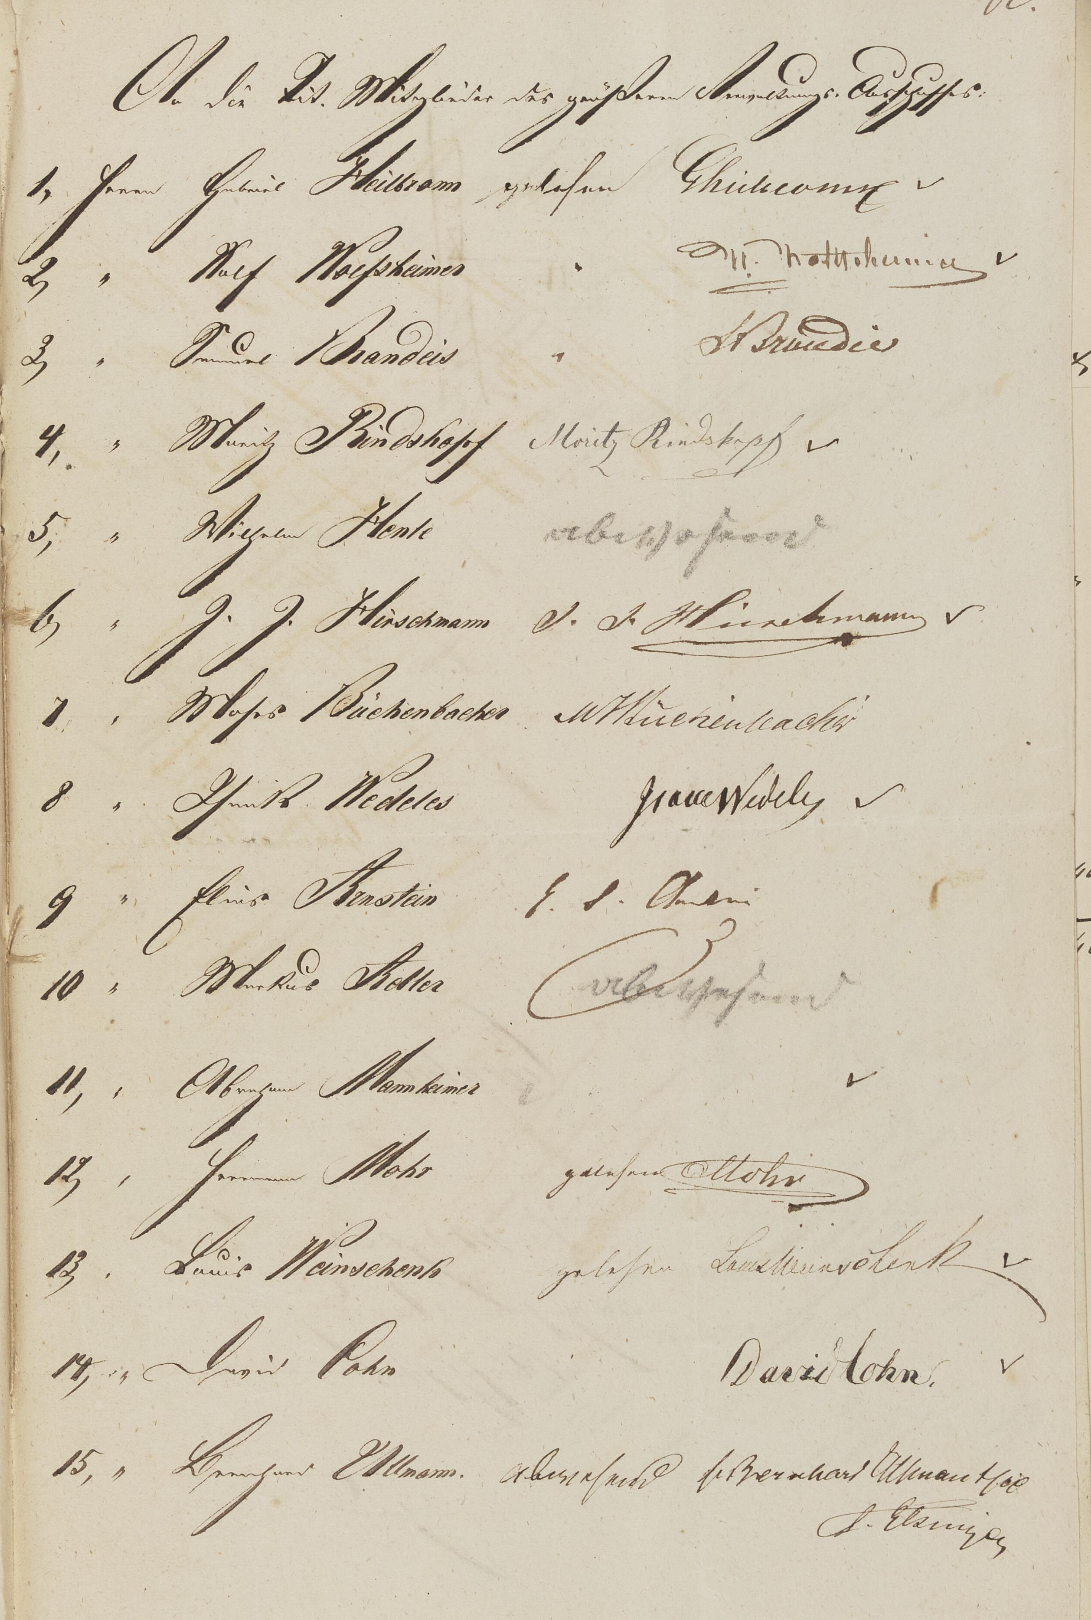 An die Tit. Mitglieder des größeren Verwaltungs-Ausschusses:
1, Herrn Gabriel Heilbronn gelesen ✓
2, " Wolf Wolfsheimer " ✓
3, " Samuel Brandeis " SBrandeis
4, " Moritz Rindskopf Moritz Rindskopf ✓
5, " Wilhelm Henle abwesend
6, " J. J. Hirschmann J. J. Hirschmann ✓
7, " Moses Büchenbacher MBüchenbacher
8 " Isaak Wedeles Isaac Wedeles ✓
9 " Elias Arnstein E. S.
10 " Markus Adler abwesend
11, " Abraham Mannheimer ✓
12, " Hermann Mohr gelesen Mohr
13, " Louis Weinschenk gelesen Louis Weinschenk ✓
14, " David Cohn David Cohn. ✓
15, " Bernhard Ullmann. abwesend Bernhard Ullmann